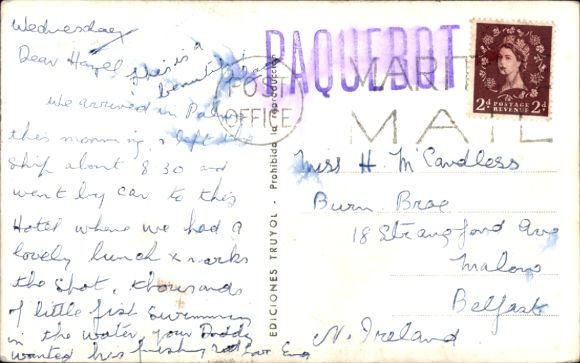 Wednesday
Dear Hazel This is a
beautiful
We arrived in Palma
this morning, & left the
ship about 8 30 and
went by car to this
Hotel where we had a
lovely lunch x marks
the spot, thousands
of little fish swimming
in the water, your Daddy
wanted his fishing rod
PAQUEBOT
POST
OFFICE
MARIT
MAIL
2d POSTAGE REVENUE 2d
EDICIONES TRUYOL - Prohibida la reproducción
Miss H. McCandless
Burn Brae
18 Strangford Ave
Malone
Belfast
N. Ireland.